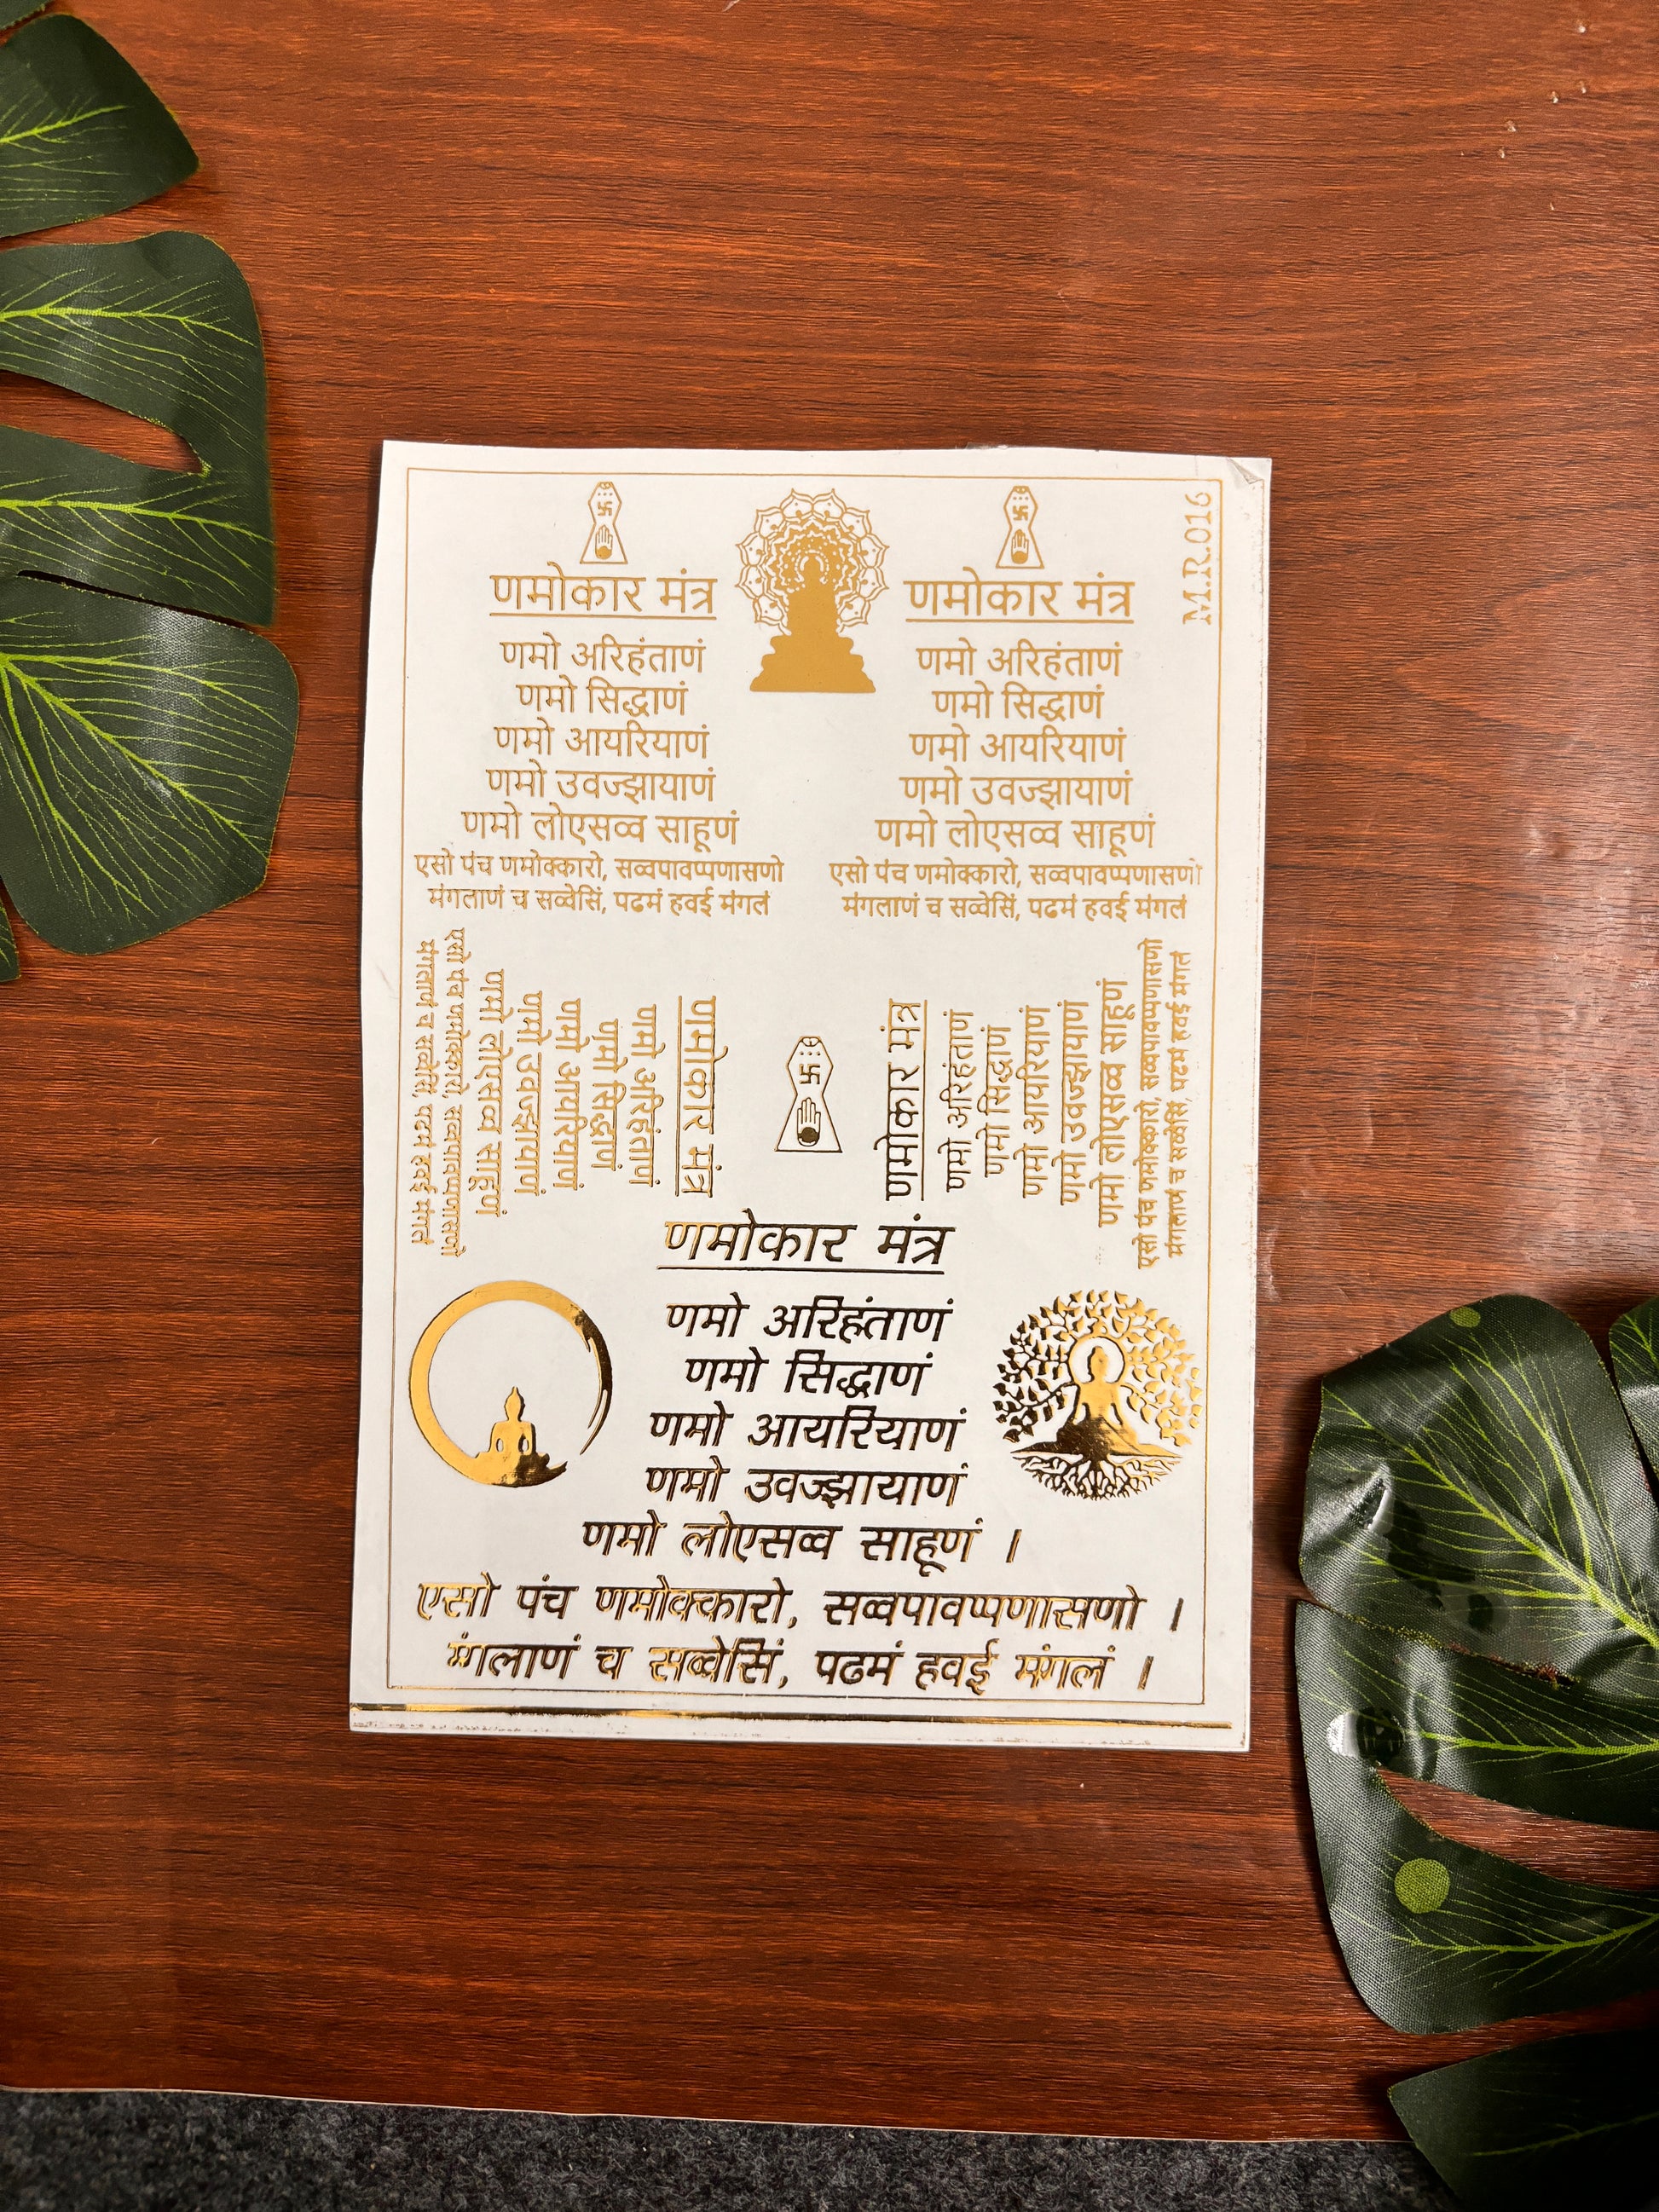 M.R.016
णमोकार मंत्र
णमो अरिहंताणं
णमो सिद्धाणं
णमो आयरियाणं
णमो उवज्झायाणं
णमो लोएसव्व साहूणं
एसो पंच णमोक्कारो, सव्वपावप्पणासणो
मंगलाणं च सव्वेसिं, पढमं हवई मंगलं
णमोकार मंत्र
णमो अरिहंताणं
णमो सिद्धाणं
णमो आयरियाणं
णमो उवज्झायाणं
णमो लोएसव्व साहूणं
एसो पंच णमोक्कारो, सव्वपावप्पणासणो
मंगलाणं च सव्वेसिं, पढमं हवई मंगलं
णमोकार मंत्र
णमो अरिहंताणं
णमो सिद्धाणं
णमो आयरियाणं
णमो उवज्झायाणं
णमो लोएसव्व साहूणं
एसो पंच णमोक्कारो, सव्वपावप्पणासणो
मंगलाणं च सव्वेसिं, पढमं हवई मंगलं
णमोकार मंत्र
णमो अरिहंताणं
णमो सिद्धाणं
णमो आयरियाणं
णमो उवज्झायाणं
णमो लोएसव्व साहूणं
एसो पंच णमोक्कारो, सव्वपावप्पणासणो
मंगलाणं च सव्वेसिं, पढमं हवई मंगलं
णमोकार मंत्र
णमो अरिहंताणं
णमो सिद्धाणं
णमो आयरियाणं
णमो उवज्झायाणं
णमो लोएसव्व साहूणं ।
एसो पंच णमोक्कारो, सव्वपावप्पणासणो ।
मंगलाणं च सव्वेसिं, पढमं हवई मंगलं ।